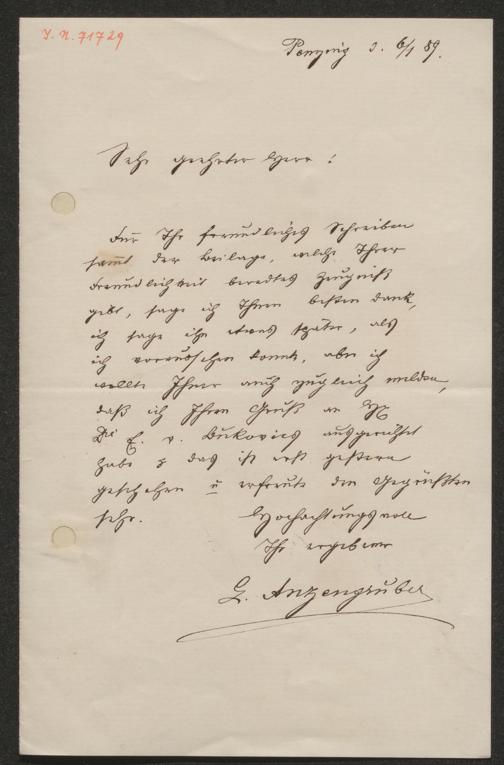 I. N. 71729
Penzing d. 6/1 89.
Sehr geehrter Herr!
Für Ihr freundliches Schreiben
sammt der Beilage, welche Ihrer
Freundlichkeit beredtes Zeugniß
gibt, sage ich Ihnen besten Dank,
ich sage ihn etwas später, als
ich voraussehen konnte, aber ich
wollte Ihnen auch zugleich melden,
daß ich Ihren Gruß an
Dir E. v. Bukovics ausgerichtet
habe das ist erst gestern
geschehen u erfreute den Gegrüßten
sehr. Hochachtungsvoll
Ihr ergebener
L. Anzengruber